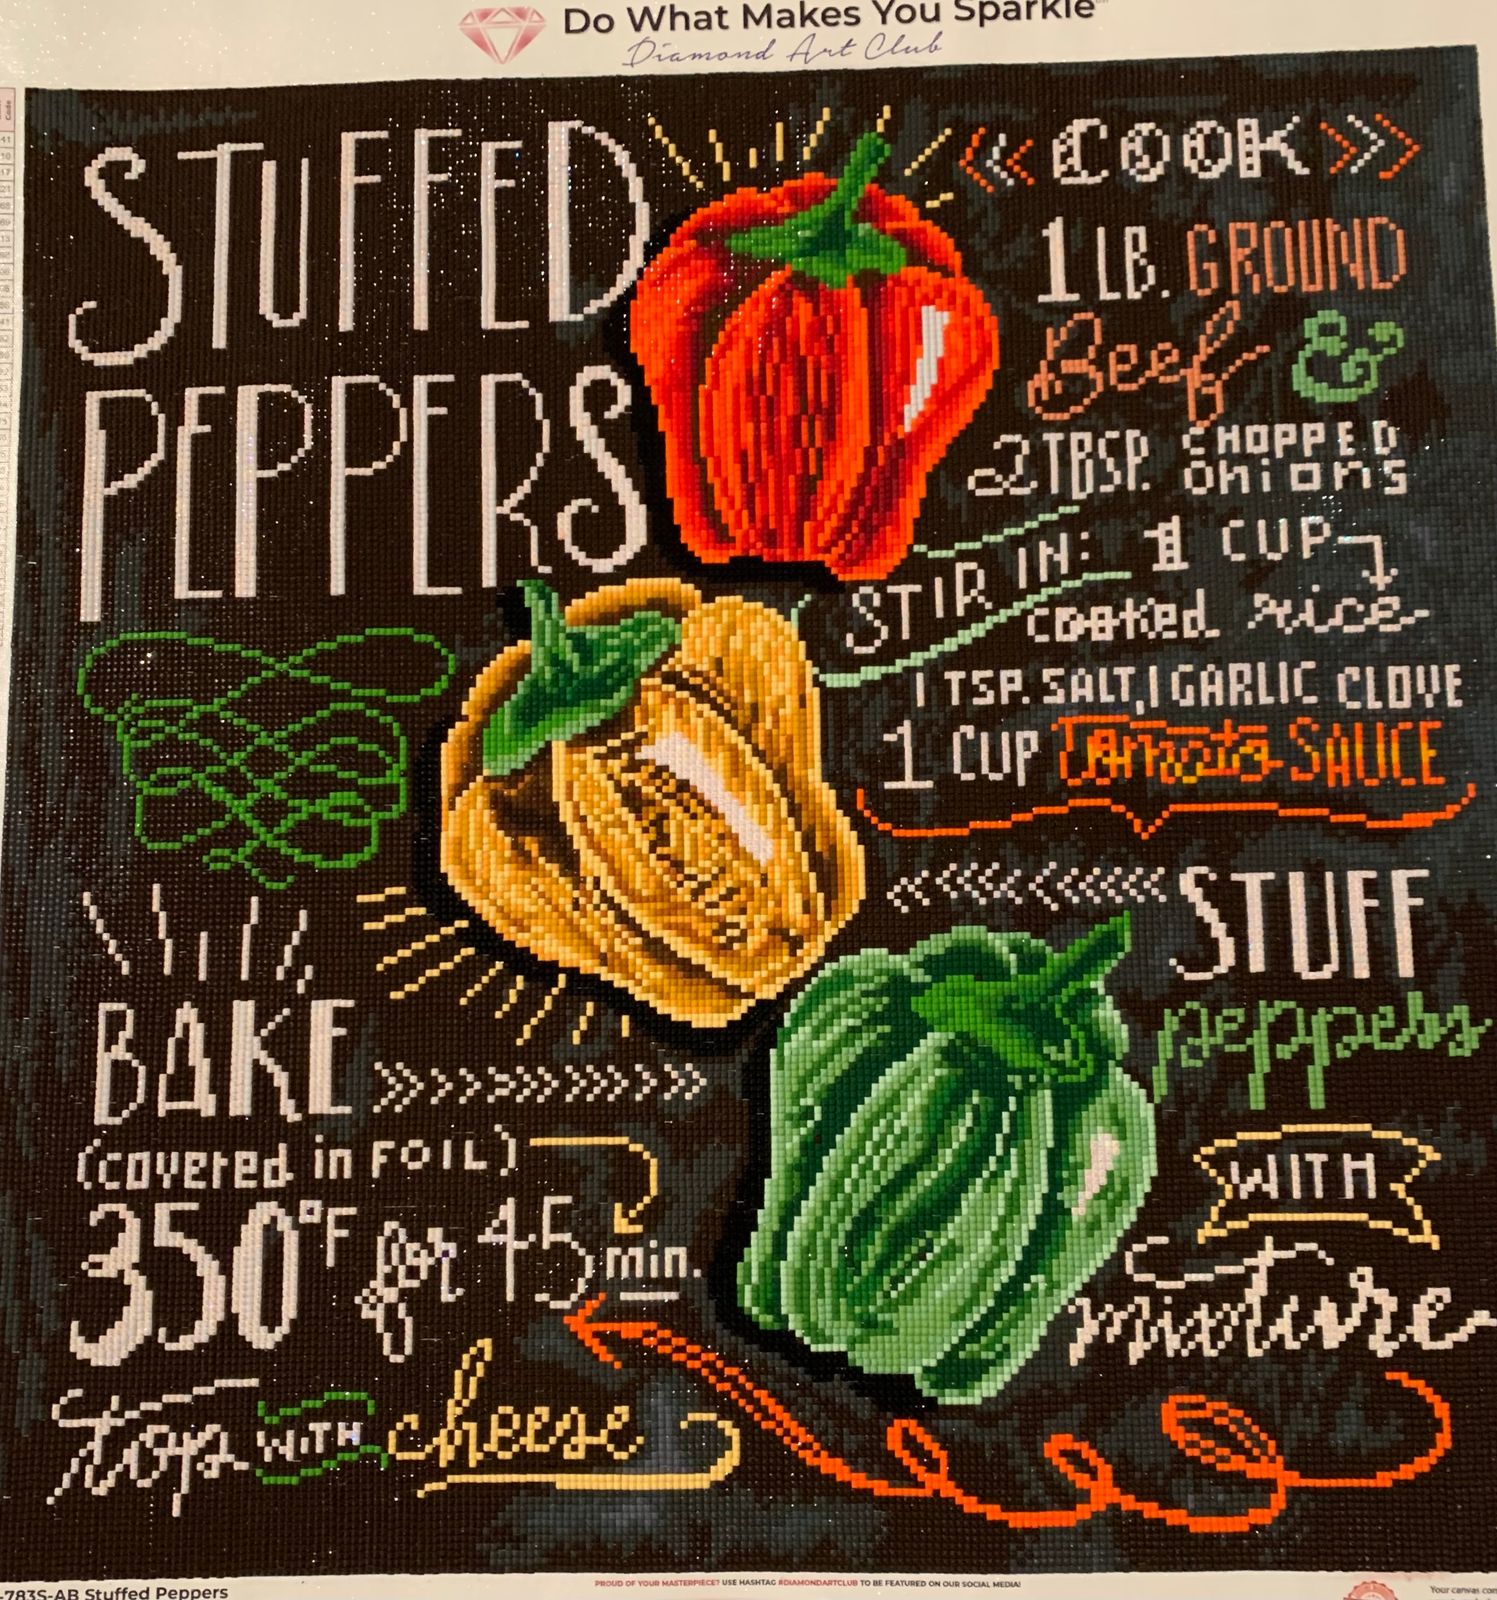 Do What Makes You Sparkle
Diamond Art Club
STUFFED
PEPPERS
COOK
1 LB. GROUND
Beef &
2 TBSP. CHOPPED
Onions
STIR IN: 1 CUP
cooked rice
1 TSP. SALT, 1 GARLIC CLOVE
1 CUP Tomato SAUCE
STUFF
peppers
WITH
mixture
BAKE
(covered in FOIL)
350°F for 45 min.
top WITH cheese
-783S-AB Stuffed Peppers
PROUD OF YOUR MASTERPIECE? USE HASHTAG #DIAMONDARTCLUB TO BE FEATURED ON OUR SOCIAL MEDIA!
Your canvas com